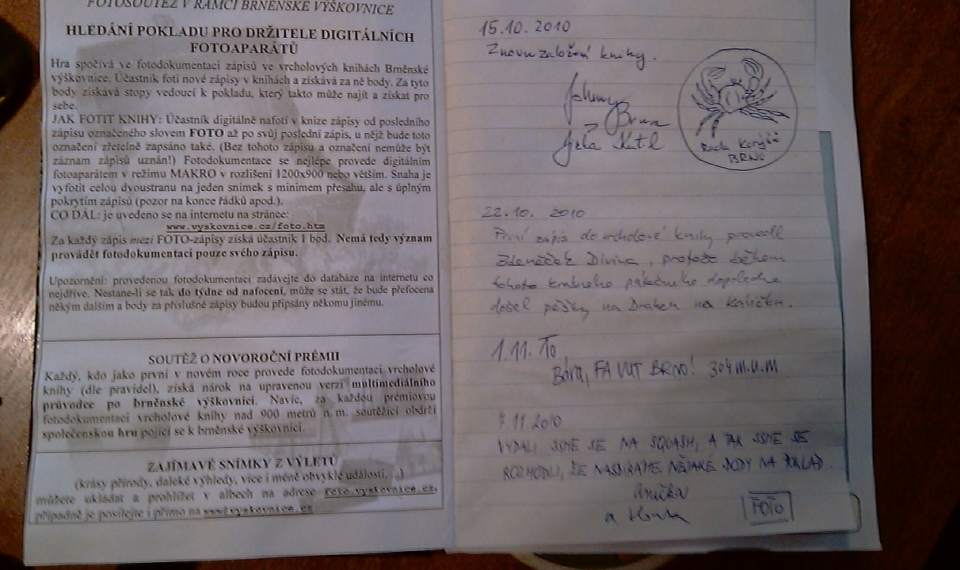 FOTOSOUTĚŽ V RÁMCI BRNĚNSKÉ VÝŠKOVNICE
HLEDÁNÍ POKLADU PRO DRŽITELE DIGITÁLNÍCH
FOTOAPARÁTŮ
Hra spočívá ve fotodokumentaci zápisů ve vrcholových knihách Brněnské
výškovnice. Účastník fotí nové zápisy v knihách a získává za ně body. Za tyto
body získává stopy vedoucí k pokladu, který takto může najít a získat pro
sebe.
JAK FOTIT KNIHY: Účastník digitálně nafotí v knize zápisy od posledního
zápisu označeného slovem FOTO až po svůj poslední zápis, u nějž bude toto
označení zřetelně zapsáno také. (Bez tohoto zápisu a označení nemůže být
záznam zápisů uznán!) Fotodokumentace se nejlépe provede digitálním
fotoaparátem v režimu MAKRO v rozlišení 1200x900 nebo větším. Snaha je
vyfotit celou dvoustranu na jeden snímek s minimem přesahu, ale s úplným
pokrytím zápisů (pozor na konce řádků apod.).
CO DÁL: je uvedeno se na internetu na stránce:
www.vyskovnice.cz/foto.htm
Za každý zápis mezi FOTO-zápisy získá účastník 1 bod. Nemá tedy význam
provádět fotodokumentaci pouze svého zápisu.
Upozornění: provedenou fotodokumentaci zadávejte do databáze na internetu co
nejdříve. Nestane-li se tak do týdne od nafocení, může se stát, že bude přefocena
někým dalším a body za příslušné zápisy budou připsány někomu jinému.
SOUTĚŽ O NOVOROČNÍ PRÉMII
Každý, kdo jako první v novém roce provede fotodokumentaci vrcholové
knihy (dle pravidel), získá nárok na upravenou verzi multimediálního
průvodce po brněnské výškovnici. Navíc, za každou prémiovou
fotodokumentaci vrcholové knihy nad 900 metrů n.m. soutěžící obdrží
společenskou hru pojící se k brněnské výškovnici.
ZAJÍMAVÉ SNÍMKY Z VÝLETŮ
(krásy přírody, daleké výhledy, více i méně obvyklé události, ...)
můžete ukládat a prohlížet v albech na adrese foto.vyskovnice.cz,
případně je posílejte i přímo na www.vyskovnice.cz
15.10.2010
Znovuzaložení knihy.
Johny
Brno
BRNO
22.10. 2010
První zápis do vrcholové knihy provedl
Zdeněček Divina, protože během
tohoto krásného pátečního dopoledne
došel pěšky na Drahen na Kolíčku.
1.11. 10
Bára, FA VUT BRNO! 304 m.n.m
7.11.2010
VYDALI JSME SE NA SQUASH, A TAK JSME SE
ROZHODLI, ŽE NASBÍRÁME NĚJAKÉ BODY NA POKLAD.
Anička
a Honza
FOTO